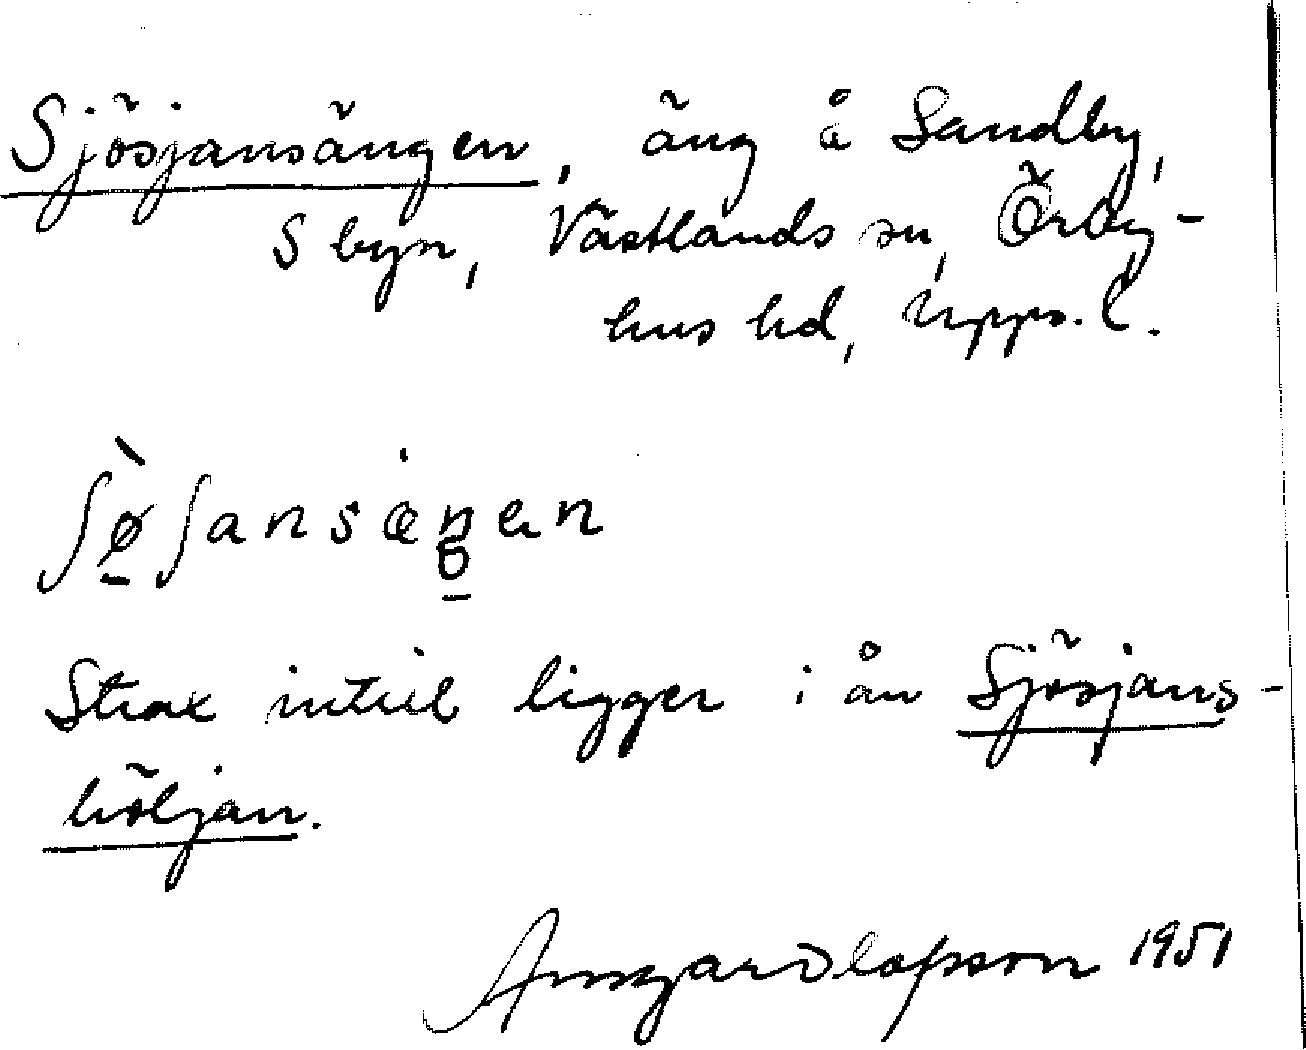 Sjösjansängen, äng å Sandby,
S byn, Västlands sn, Örby-
hus hd, Upps. l.
ʃø̀ʃansæŋen
Strax intill ligger i ån Sjösjans-
höljan.
Ansgar Olofsson 1951